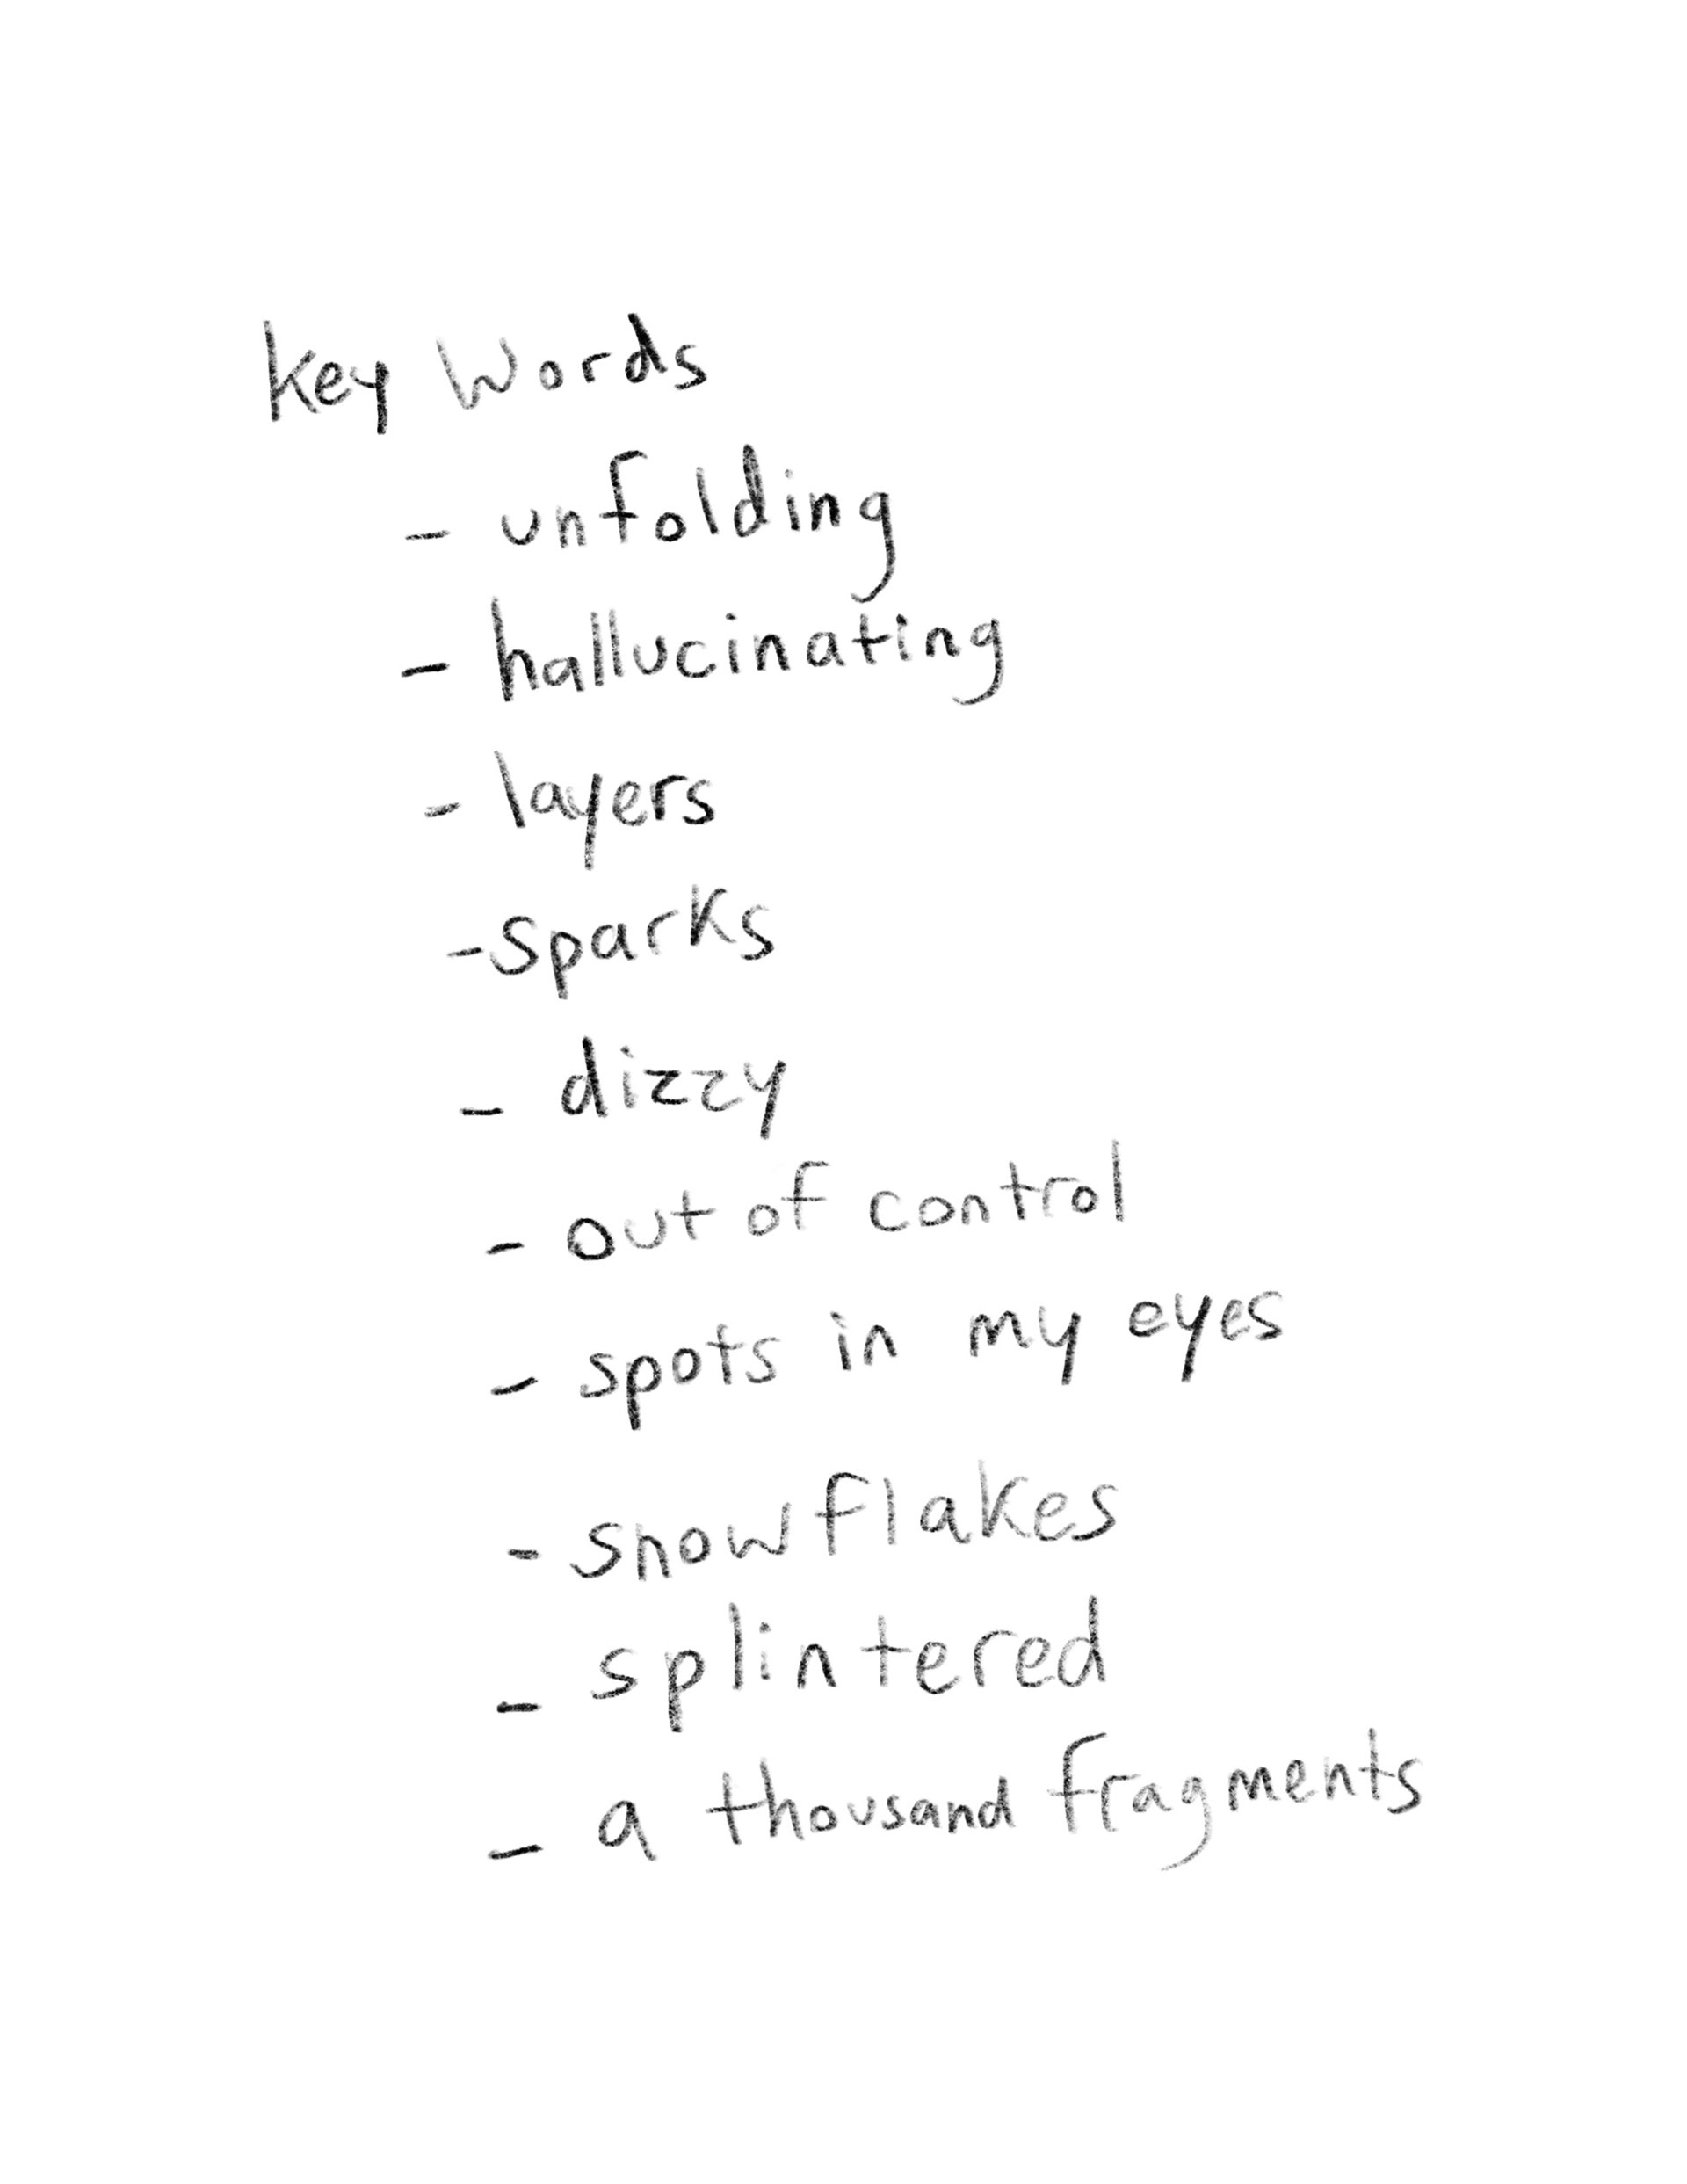 key Words
- unfolding
- hallucinating
- layers
- sparks
- dizzy
- out of control
- spots in my eyes
- snowflakes
- splintered
- a thousand fragments